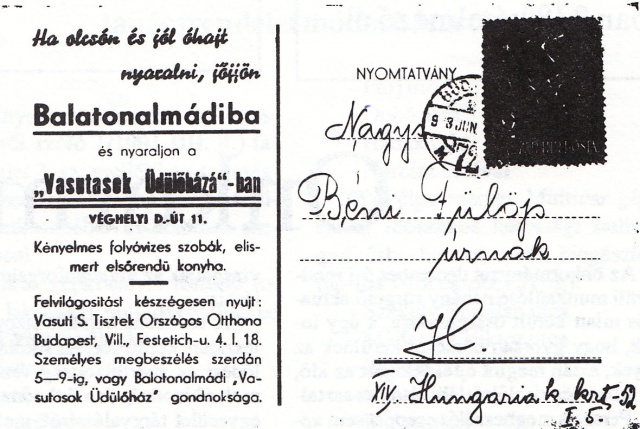 Ha olcsón és jól óhajt
nyaralni, jőjjön
Balatonalmádiba
és nyaraljon a
„Vasutasok Üdülőházá"-ban
VÉGHELYI D.-ÚT 11.
Kényelmes folyóvizes szobák, elis-
mert elsőrendű konyha.
Felvilágositást készségesen nyujt:
Vasuti S. Tisztek Országos Otthona
Budapest, VIII., Festetich-u. 4. I. 18.
Személyes megbeszélés szerdán
5—7-ig, vagy Balatonalmádi „Va-
sutasok Üdülőház" gondnoksága.
NYOMTATVÁNY
Nagys
Béni Fülöp
úrnak
H.
XIV, Hungária k. krt - 52
I. 5.
JUN.
72